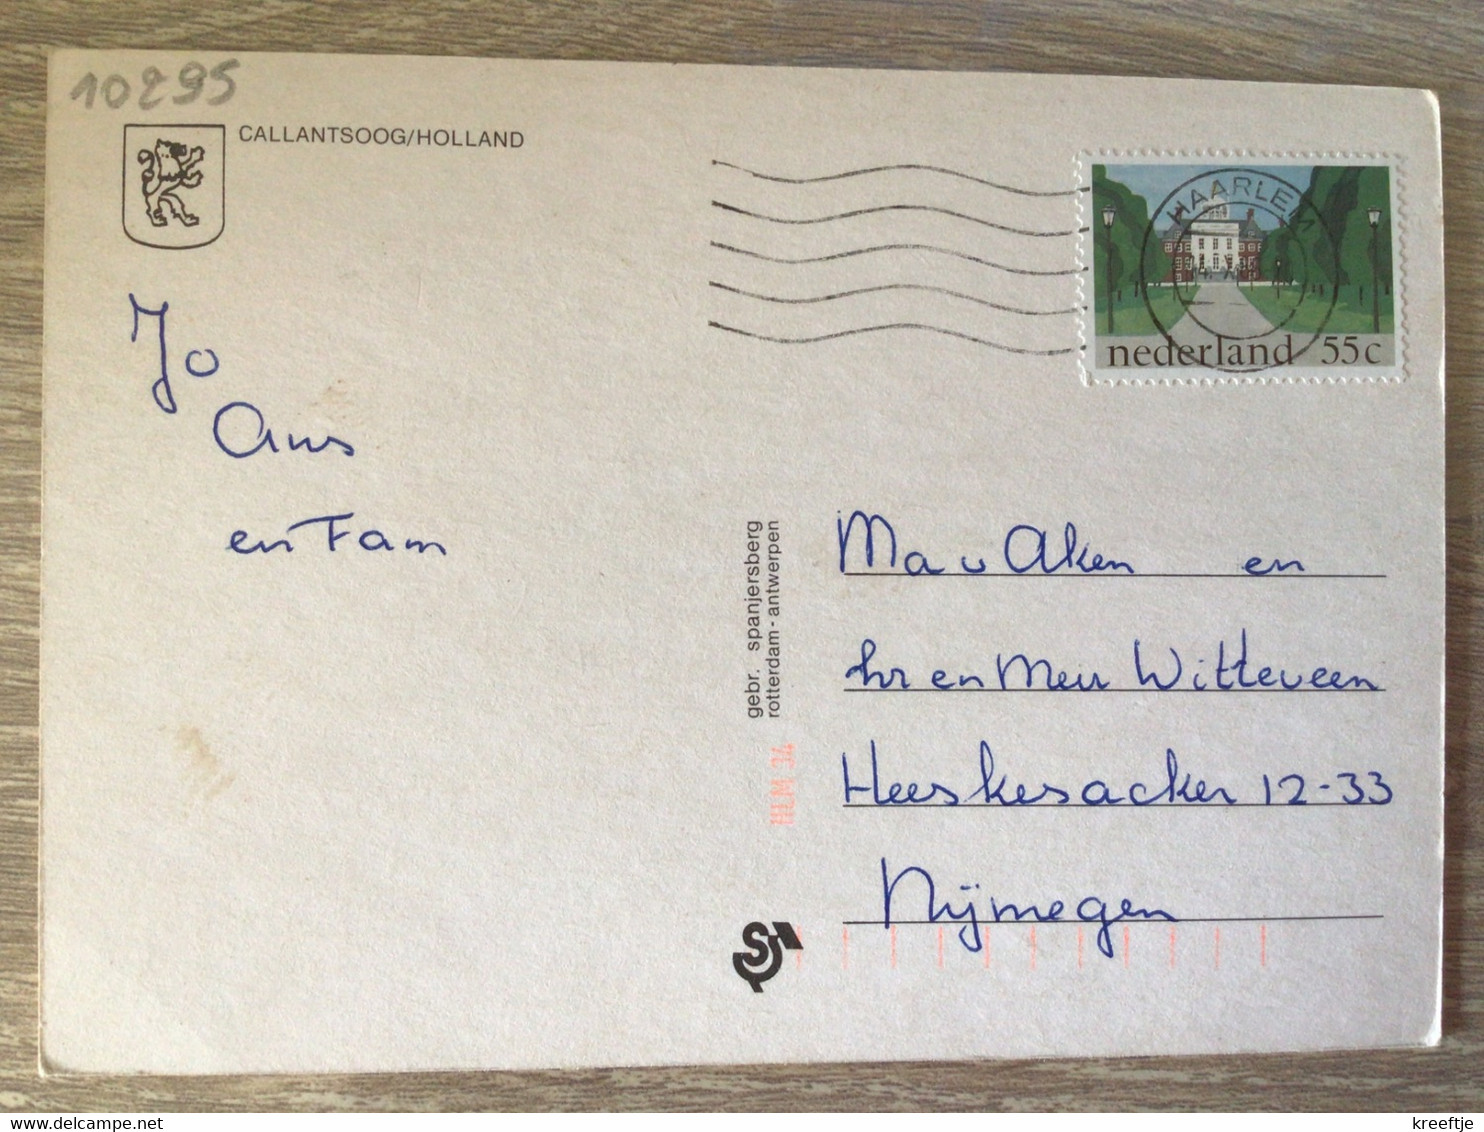 10295
CALLANTSOOG/HOLLAND
HAARLEM
nederland 55c
Jo
Ans
en Fam
gebr. spanjersberg
rotterdam - antwerpen
HLM 34
Ma v Aken en
hr en Mevr Witteveen
Heeskesacker 12-33
Nijmegen
kreeftje